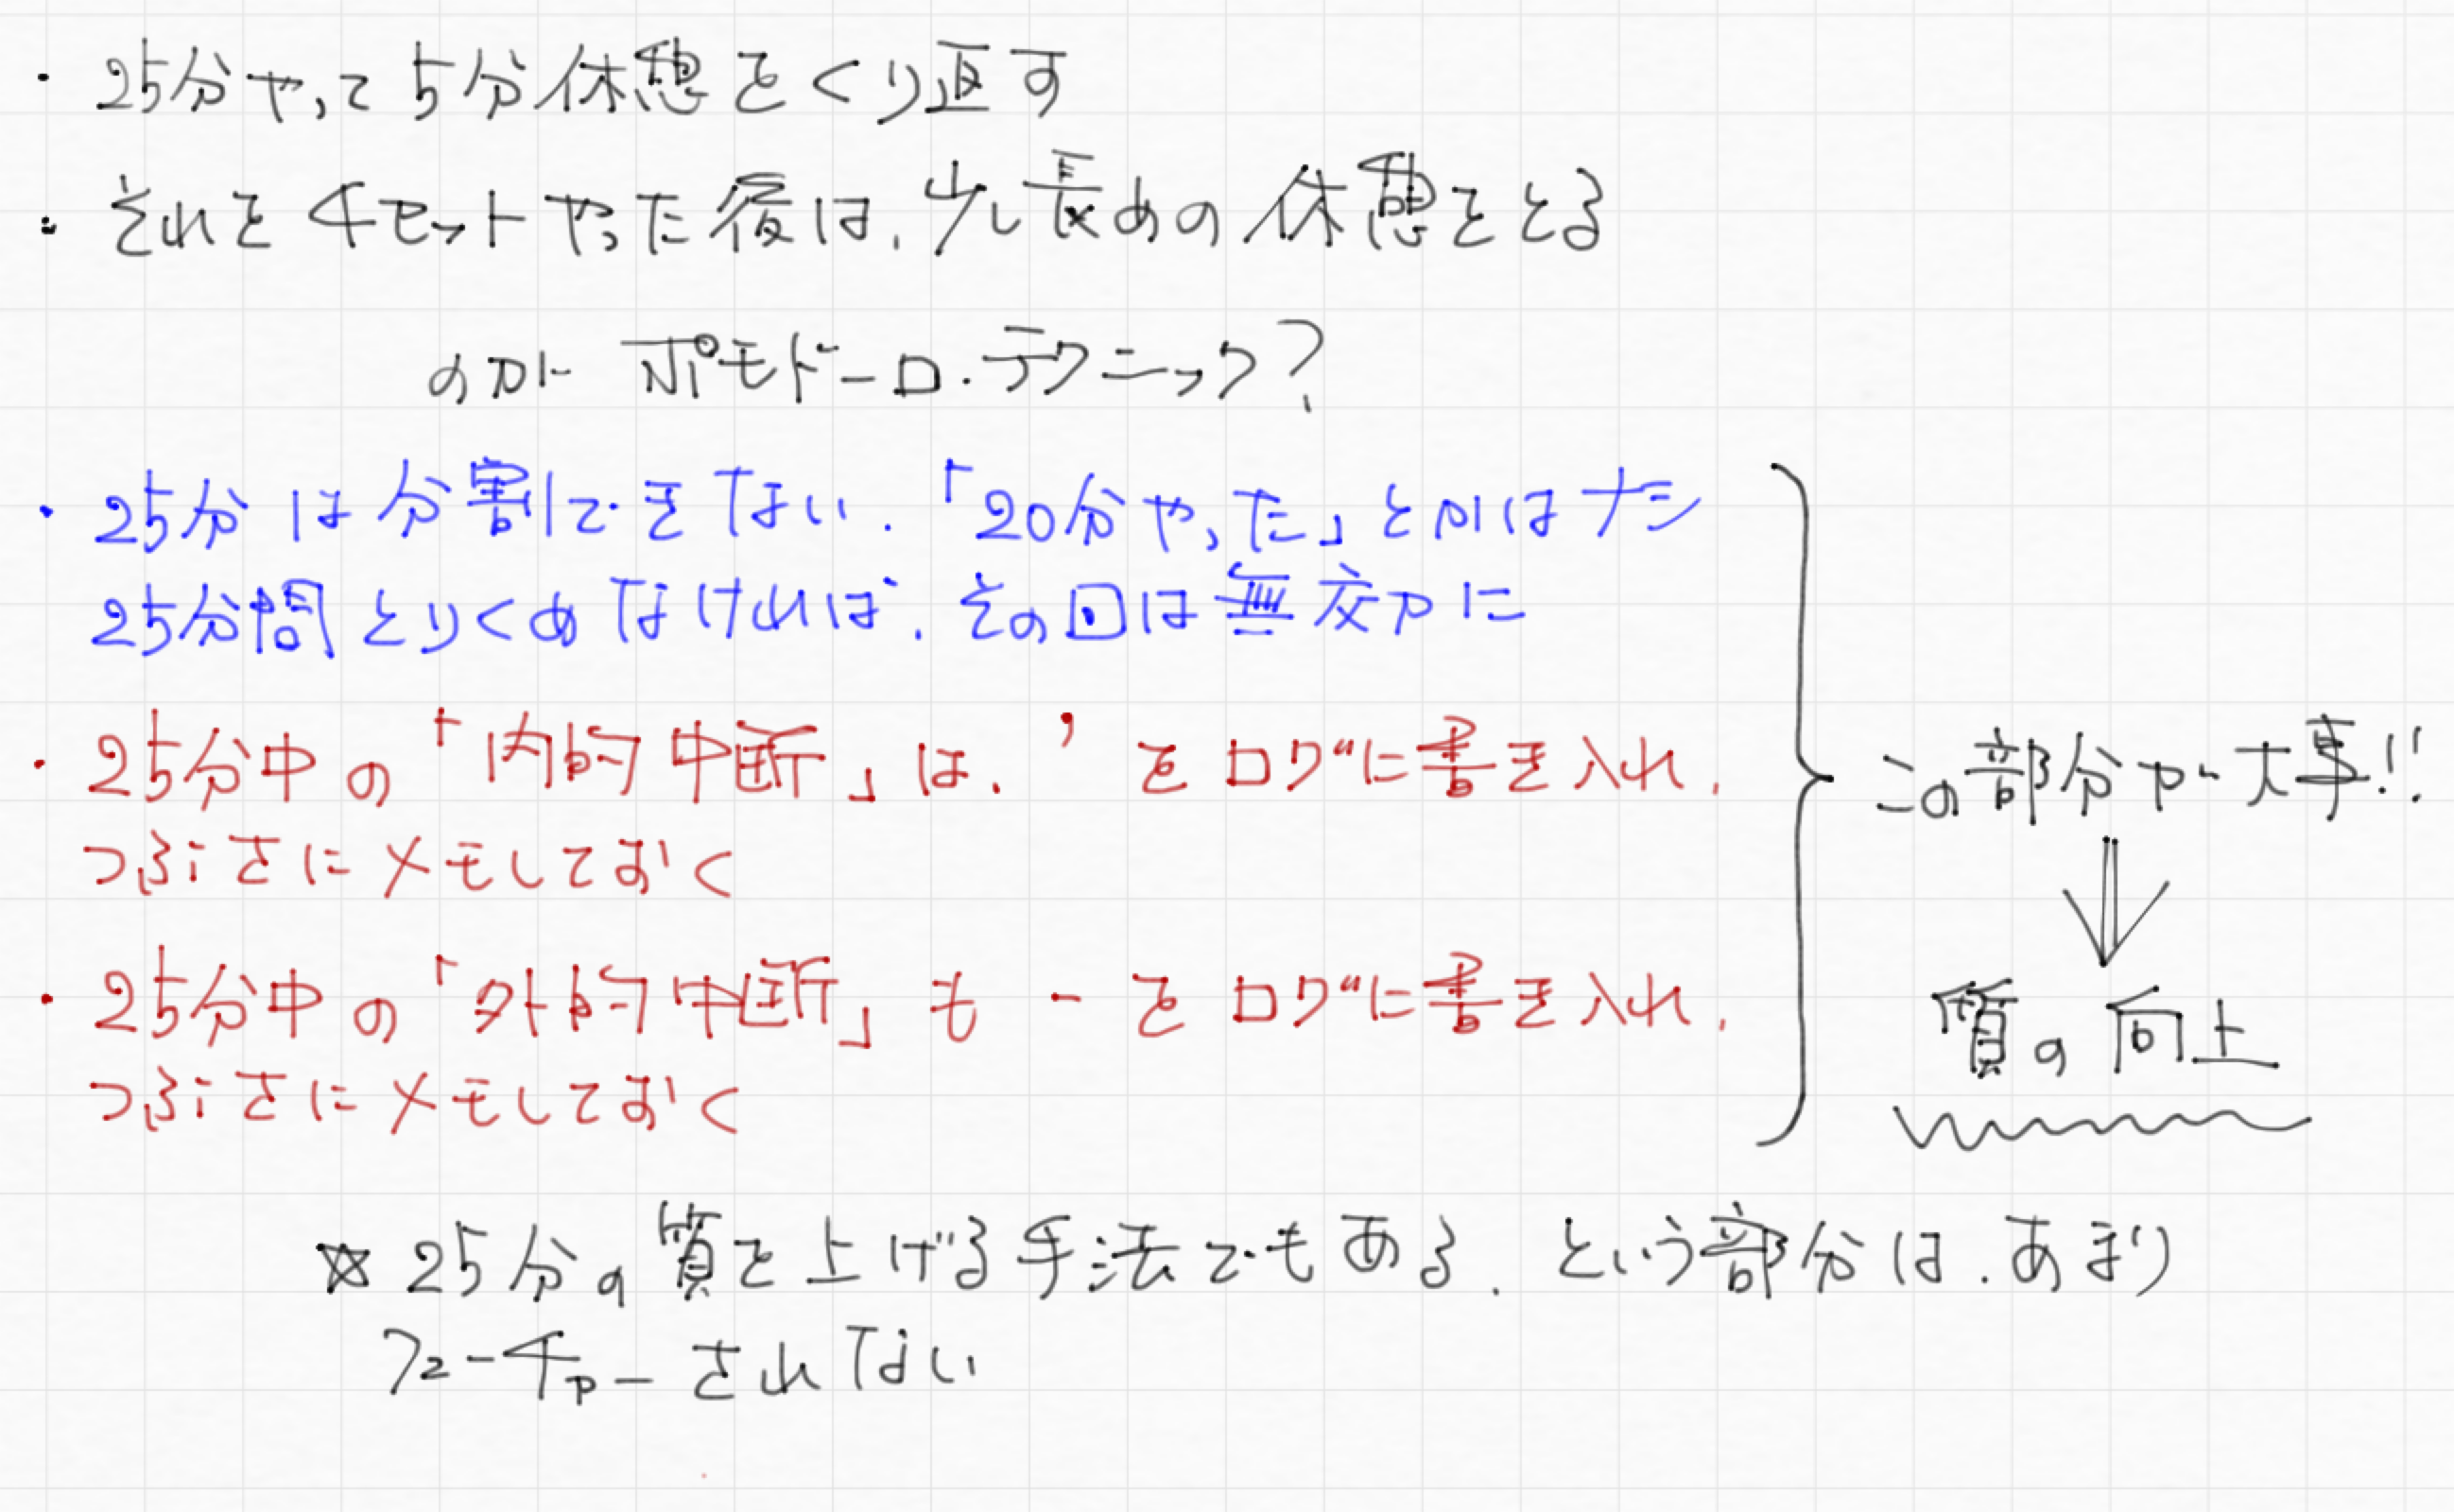 ・25分やって5分休憩をくり返す
・それを4セットやった後は、少し長めの休憩をとる
のが ポモドーロ・テクニック?
・25分は分割できない、「20分やった」とかはナシ
25分間とりくめなければ、その回は無効に
・25分中の「内的中断」は、' をログに書き入れ、
つぶさにメモしておく
・25分中の「外的中断」も - をログに書き入れ、
つぶさにメモしておく
この部分が大事!!
⇓
質の向上
☆ 25分の質を上げる手法でもある、という部分は、あまり
フューチャーされない